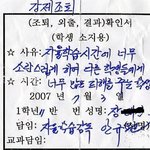 강제조퇴
(조퇴, 외출, 결과)확인서
(학생 소지용)
☆ 사유: 자율학습시간에 너무
소란스럽게 하여 다른 학생들에게
☆ 시간: 너무 많은 피해를 주는 학생
2007 년 7 월 3 일
1학년 반 번 성명: 장
담임: 자율학습감독
교과담임: